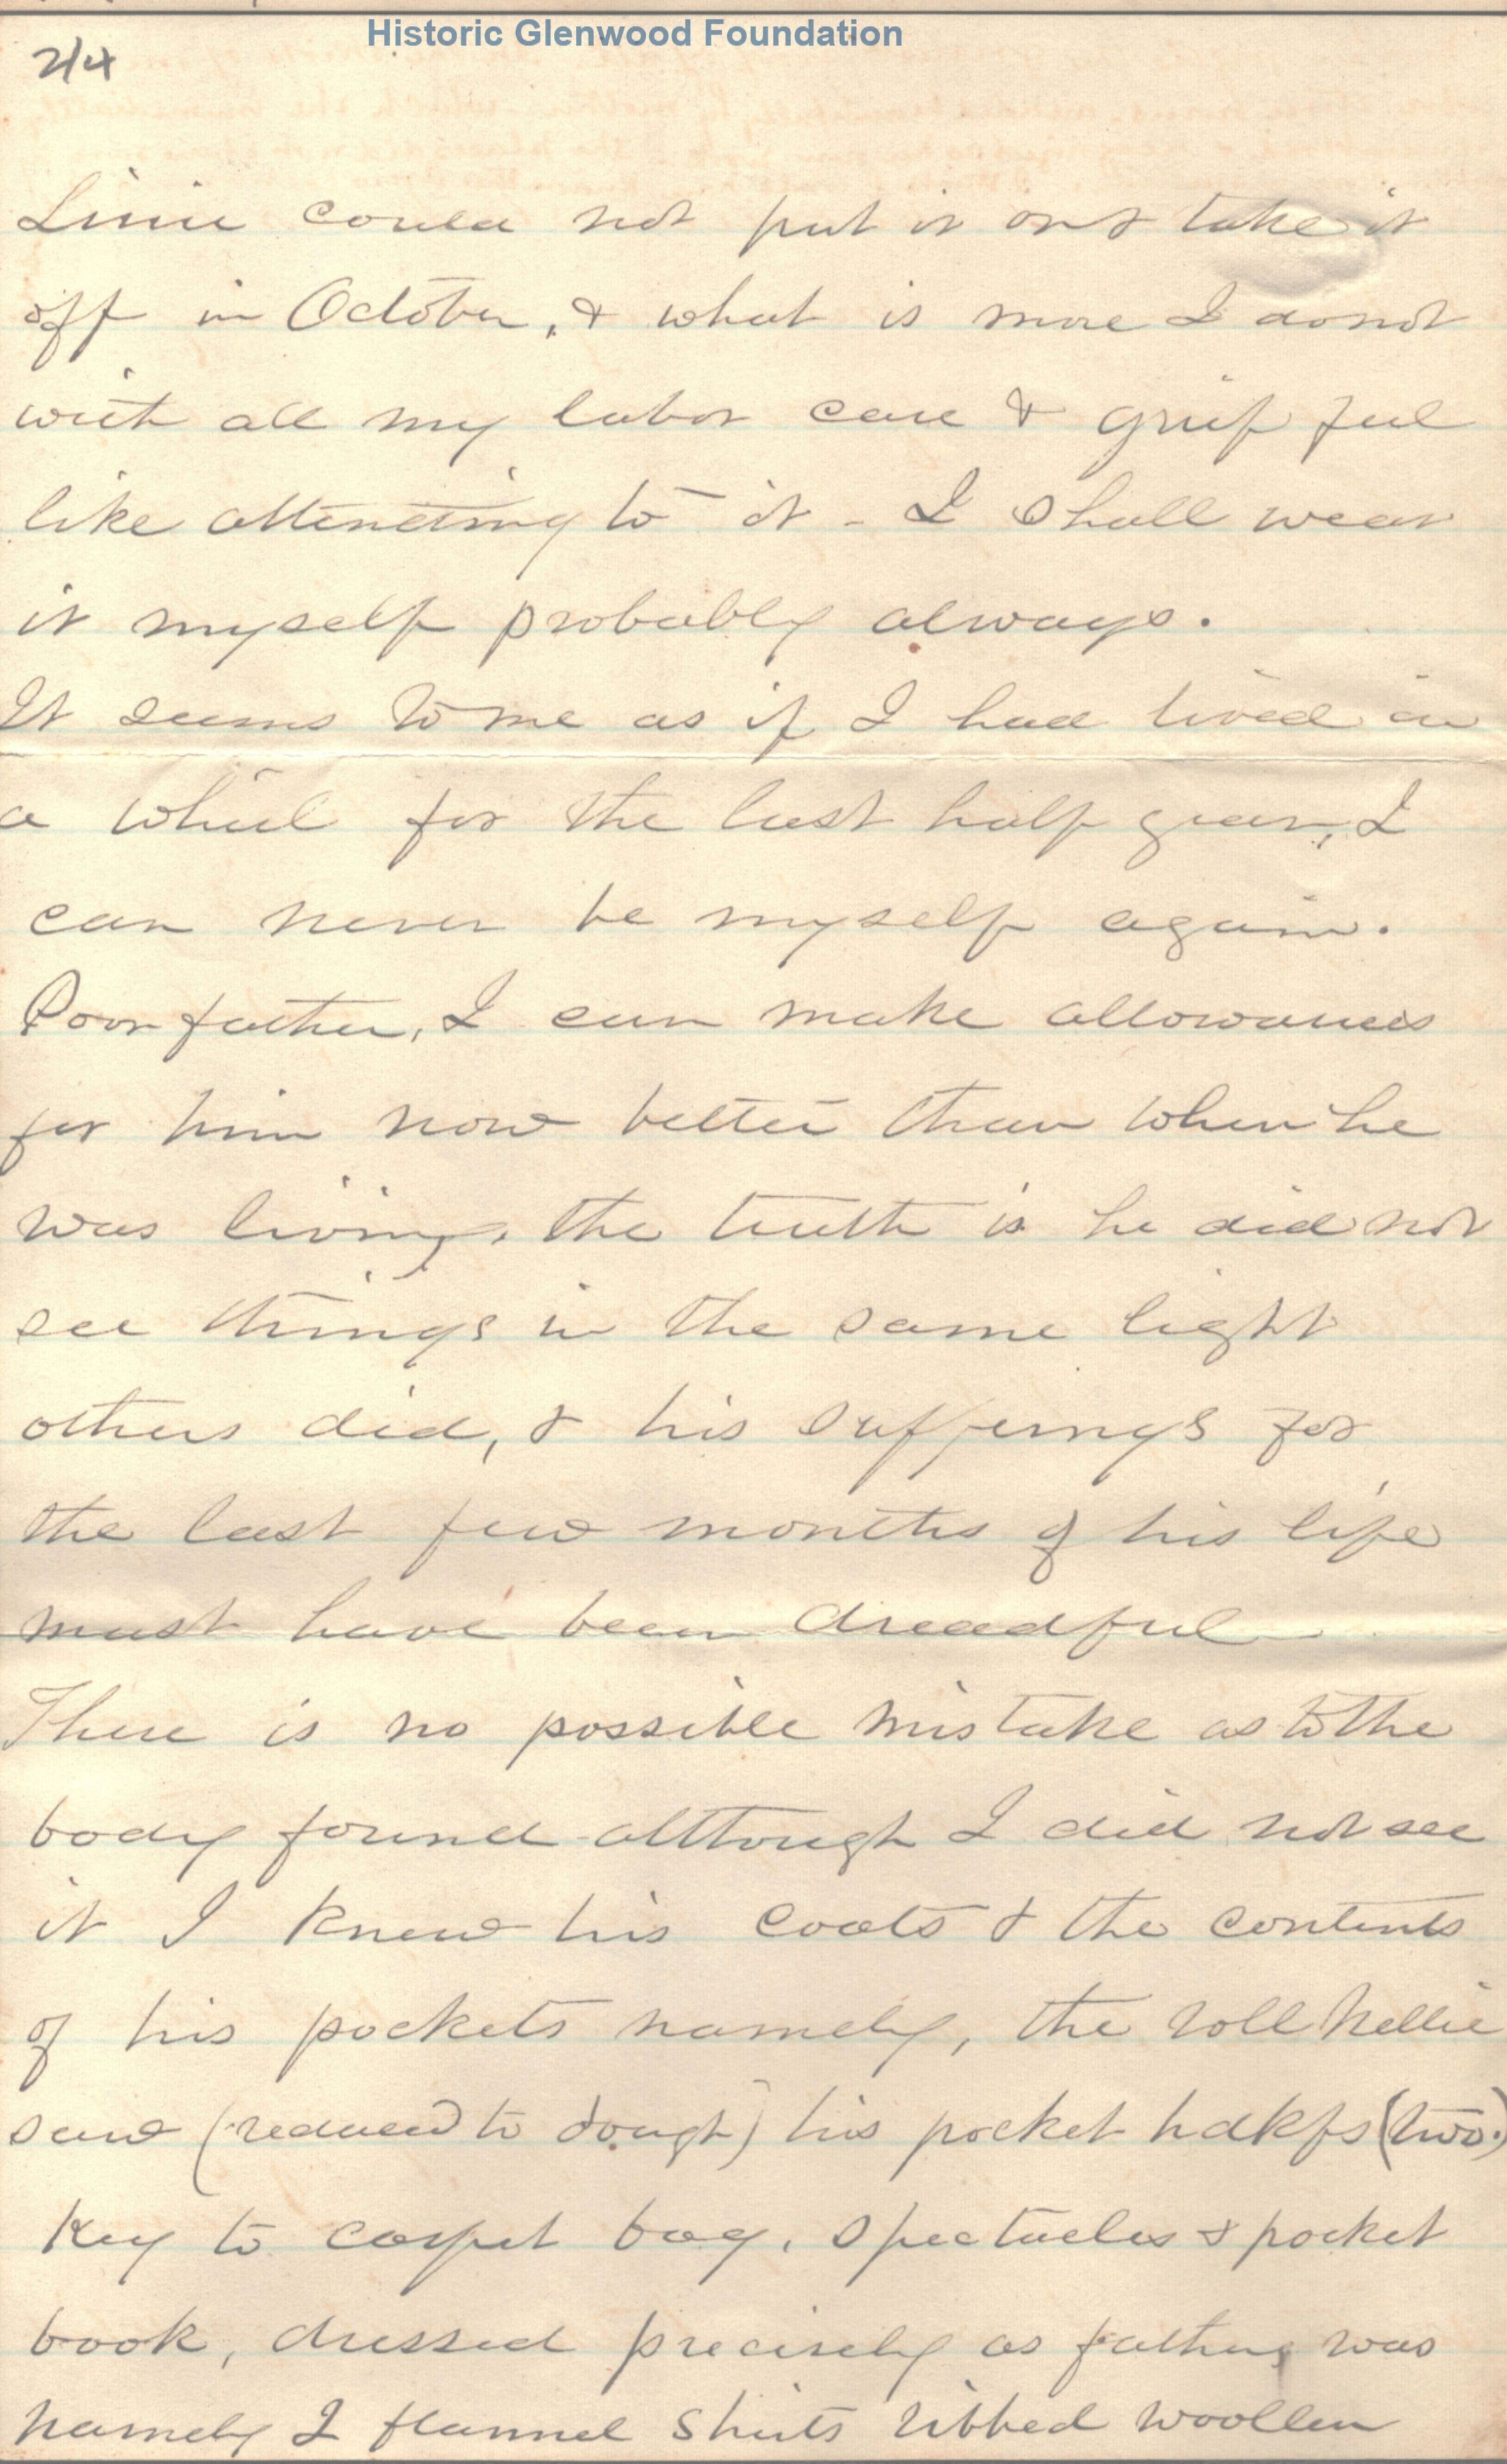 Historic Glenwood Foundation
2/4
Linie could not put it on & take it
off in October, & what is more I do not
with all my labor care & grief feel
like attending to it - I shall wear
it myself probably always.
It seems to me as if I had lived in
a whirl for the last half year, I
can never be myself again.
Poor father, I can make allowances
for him now better than when he
was living, the truth is he did not
see things in the same light
others did, & his sufferings for
the last few months of his life
must have been dreadful
There is no possible mistake as to the
body found although I did not see
it I knew his coats & the contents
of his pockets namely, the roll Nellie
saw (reduced to dough) his pocket hdkfs (two.)
Key to carpet bag, spectacles & pocket
book, dressed precisely as father was
namely 2 flannel shirts ribbed woollen